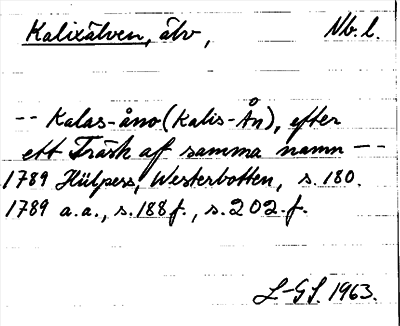 Kalixälven, älv, Nb. l.
-- Kalas-åno (Kalis-Ån), efter
ett Träsk af samma namn --
1789 Hülpers, Westerbotten, s. 180.
1789 a.a., s. 188 f., s. 202 f.
L-GS. 1963.